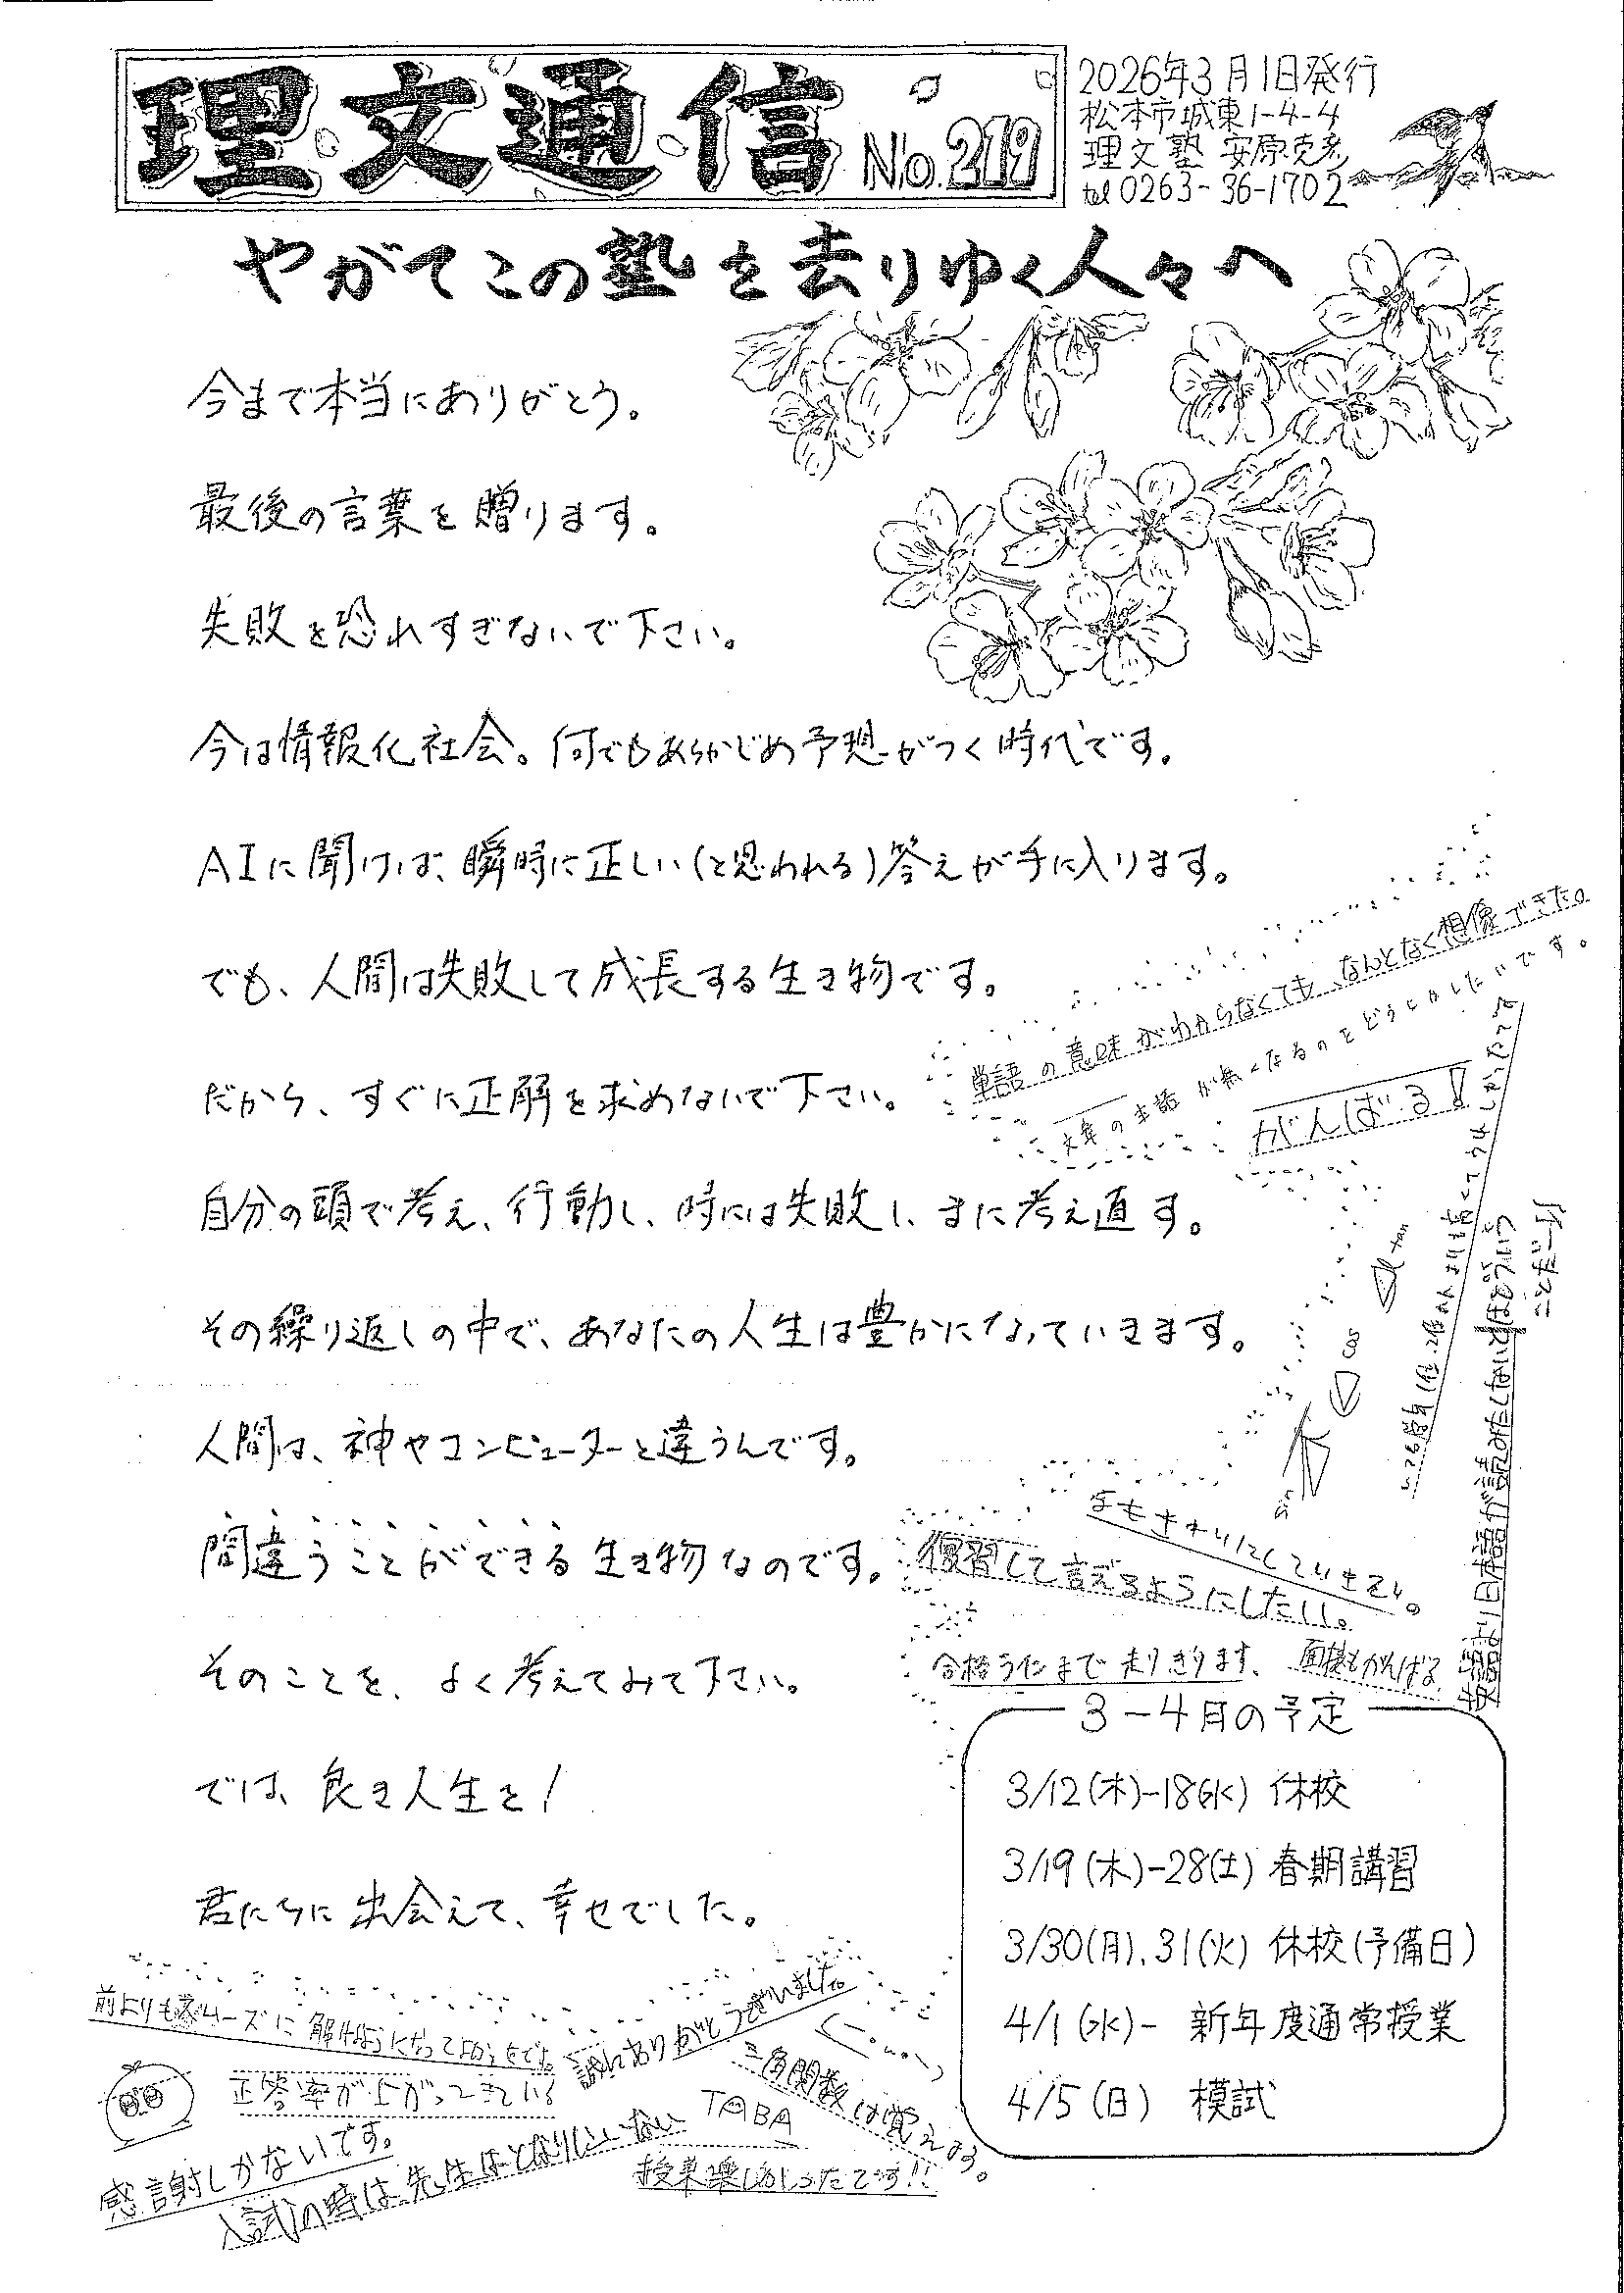 理文通信 No.219
2026年3月1日発行
松本市城東1-4-4
理文塾 安原克彦
tel 0263-36-1702
やがてこの塾を去りゆく人々へ
今まで本当にありがとう。
最後の言葉を贈ります。
失敗を恐れすぎないで下さい。
今は情報化社会。何でもあらかじめ予想がつく時代です。
AIに聞けば、瞬時に正しい(と思われる)答えが手に入ります。
でも、人間は失敗して成長する生き物です。
だから、すぐに正解を求めないで下さい。
自分の頭で考え、行動し、時には失敗し、また考え直す。
その繰り返しの中で、あなたの人生は豊かになっていきます。
人間は、神やコンピューターと違うんです。
間違うことができる生き物なのです。
そのことを、よく考えてみて下さい。
では、良き人生を!
君たちに出会えて、幸せでした。
単語の意味がわからなくても、なんとなく想像できた。
が無くなるのをどうにかしたいです。
がんばる!
tan
cos
復習して言えるようにしたい。
合格うたまで走りきります、面接もがんばる
3-4月の予定
3/12(木)-18(水) 休校
3/19(木)-28(土) 春期講習
3/30(月),31(火) 休校(予備日)
4/1(水)- 新年度通常授業
4/5(日) 模試
前よりもスムーズに解けるようになってよかったです。
正答率が上がってきている
誠にありがとうございました。
三角関数は覚える。
感謝しかないです。
入試の時は先生はとなりにいない
TABA
授業楽しかったです!!